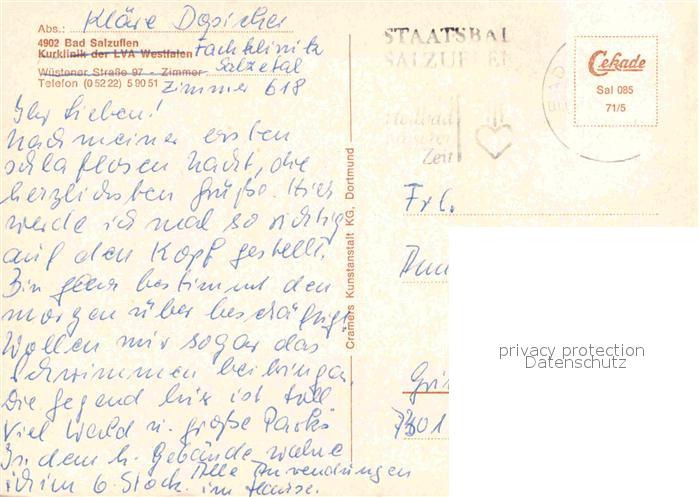 Abs.: Kläre Dopicher
4902 Bad Salzuflen
Kurklinik der LVA Westfalen Fachklinik
Wüstener Straße 97 - Zimmer Salzetal
Telefon (05222) 59051 Zimmer 618
Ihr Lieben!
Nach meiner ersten
schlaflosen Nacht, die
herzlichsten Grüße. Hier
werde ich mal so richtig
auf den Kopf gestellt.
Bin ganz bestimmt den
morgen über beschäftigt
Wollen mir sogar das
Schwimmen beibringen.
Die Gegend hier ist toll
Viel Wald u. große Parks
In dem h. Gebäude wohne
ich im 6. Stock. Alle Anwendungen
im Hause.
Cramers Kunstanstalt KG, Dortmund
STAATSBAD
SALZUFLEN
Heilbad
unserer
Zeit
Cekade
Sal 085
71/5
Frl.
privacy protection
Datenschutz